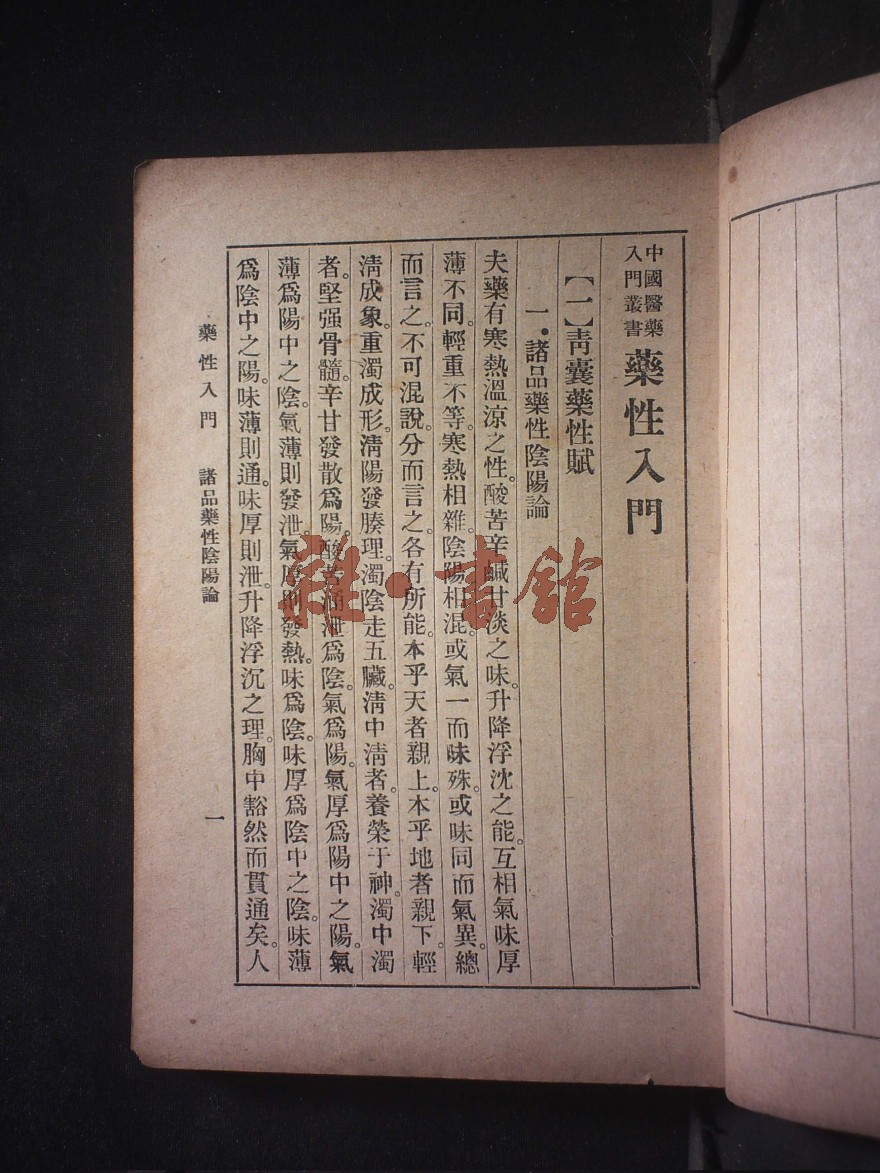 中國醫藥
入門叢書
藥性入門
【一】靑囊藥性賦
一•諸品藥性陰陽論
夫藥有寒熱溫涼之性。酸苦辛鹹甘淡之味。升降浮沈之能。互相氣味厚
薄不同。輕重不等。寒熱相雜。陰陽相混。或氣一而味殊。或味同而氣異。總
而言之。不可混說。分而言之。各有所能。本乎天者親上。本乎地者親下。輕
淸成象。重濁成形。淸陽發腠理。濁陰走五臟。淸中淸者。養榮于神。濁中濁
者。堅强骨髓。辛甘發散爲陽。酸苦涌泄爲陰。氣爲陽。氣厚爲陽中之陽。氣
薄爲陽中之陰。氣薄則發泄。氣厚則發熱。味爲陰。味厚爲陰中之陰。味薄
爲陰中之陽。味薄則通。味厚則泄。升降浮沉之理。胸中豁然而貫通矣。人
藥性入門 諸品藥性陰陽論
一
雜·書館